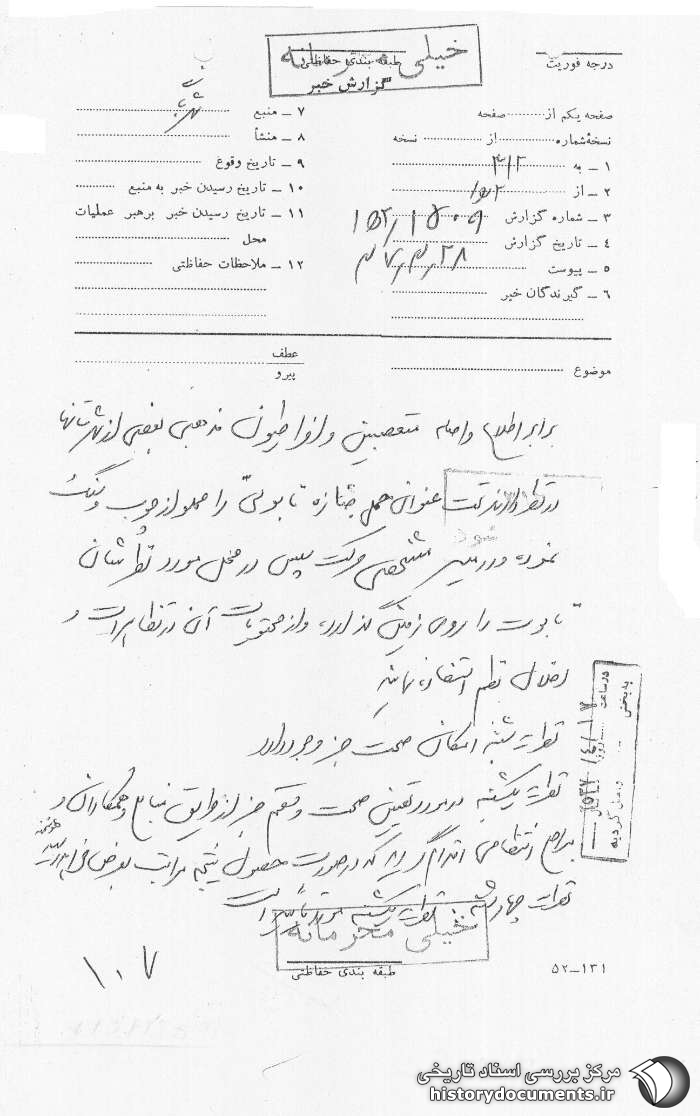 خیلی محرمانه
طبقه بندی حفاظتی
گزارش خبر
درجه فوریت
صفحه یکم از صفحه
نسخهٔ شماره از نسخه
۱ ـ به ۳۱۲
۲ ـ از
۳ ـ شماره گزارش
۴ ـ تاریخ گزارش
۵ ـ پیوست
۶ ـ گیرندگان خبر
۷ ـ منبع
۸ ـ منشأ
۹ ـ تاریخ وقوع
۱۰ ـ تاریخ رسیدن خبر به منبع
۱۱ ـ تاریخ رسیدن خبر برهبر عملیات
محل
۱۲ ـ ملاحظات حفاظتی
موضوع
عطف
پیرو
برابر اطلاع واصله متعصبین و افراطیون مذهبی بعضی از شهرستانها
در نظر دارند تحت عنوان حمل جنازه تابوتی را مملو از چوب و سنگ
نموده و در مسیر مشخصی حرکت سپس در محل مورد نظرشان
تابوت را روی زمین گذارده و از محتویات آن در تظاهرات و
اخلال نظم استفاده نمایند
نظریه شنبه امکان صحت خبر وجود دارد
نظریه یکشنبه در مورد تعیین صحت و سقم خبر از طریق منابع و همکاران و
مراجع انتظامی اقدام گردیده که در صورت حصول نتیجه مراتب بعرض خواهد رسید
نظریه چهارشنبه نظریه یکشنبه مورد تأیید است
خیلی محرمانه
طبقه بندی حفاظتی
۱۳۱ــ۵۲
۱۰۷
به بخش
در ساعت
روز
واصل گردید
مرکز بررسی اسناد تاریخی
historydocuments.ir